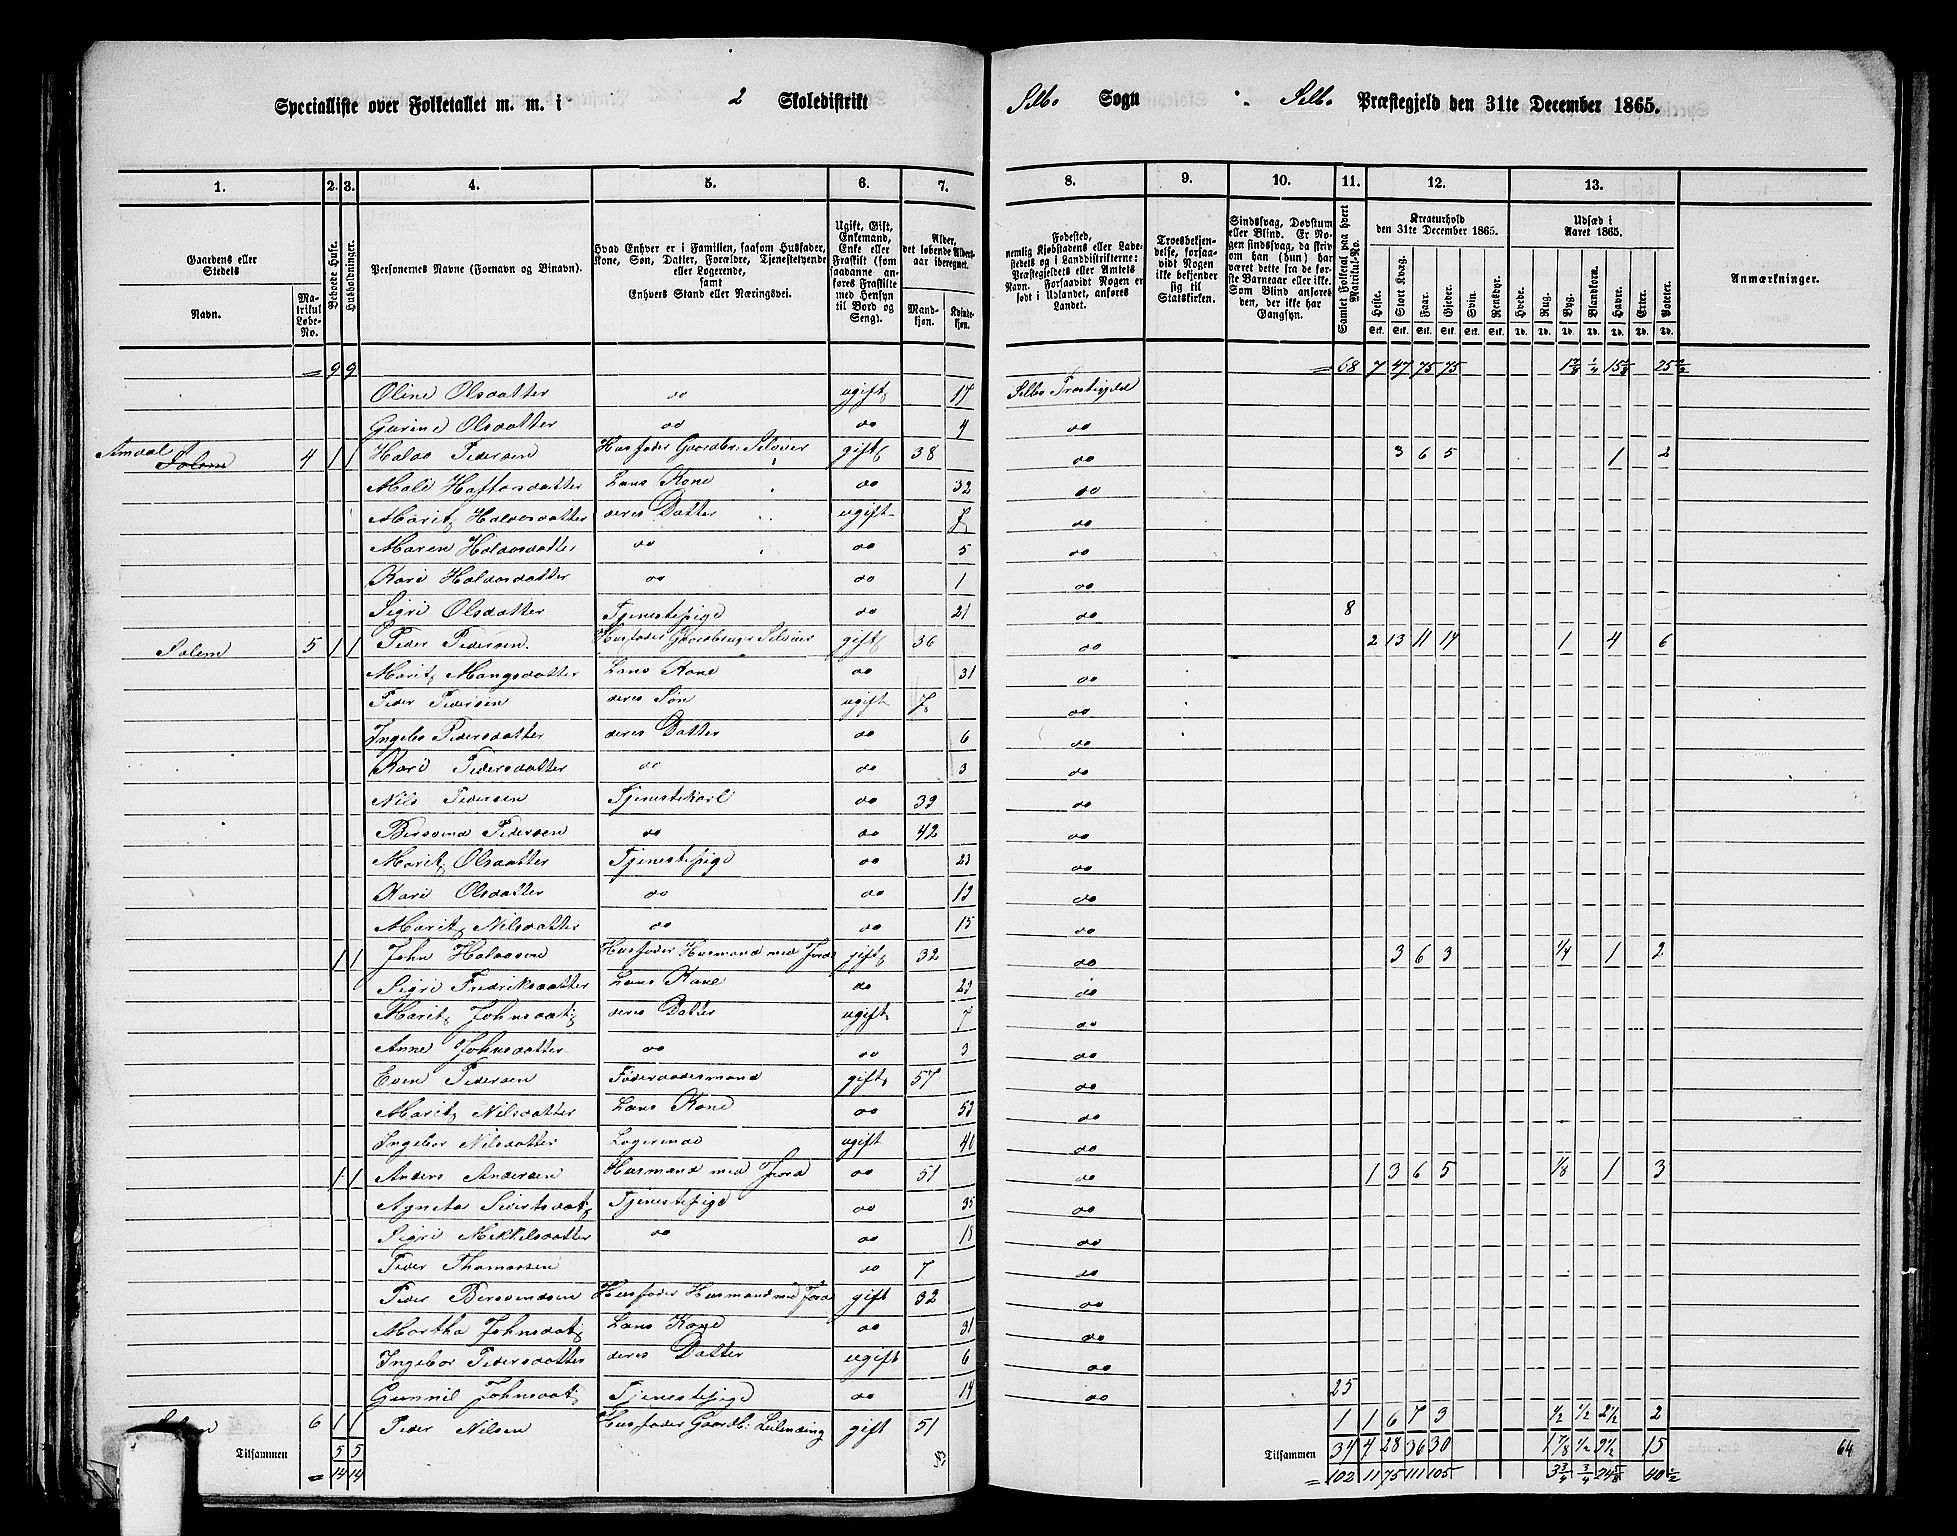 Specialliste over Folketallet m. m. i 2 Skoledistrikt Selbo Sogn Selbo Præstegjeld den 31te December 1865.
1. 2. 3. 4. 5. 6. 7. 8. 9. 10. 11. 12. 13.
Gaardens eller Stedets
Navn.
Matrikul Løbe-No.
Beboede Huse.
Husholdninger.
Personernes Navne (Fornavn og Binavn).
Hvad Enhver er i Familien, saasom Husfader, Kone, Søn, Datter, Forældre, Tjenestetyende eller Logerende, samt Enhvers Stand eller Næringsvei.
Ugift, Gift, Enkemand, Enke eller Fraskilt (som saadanne anføres Fraskilte med Hensyn til Bord og Seng).
Alder, det løbende Alders-aar iberegnet.
Mandkjøn. Kvindekjøn.
Fødested, nemlig Kjøbstadens eller Ladestedets og i Landdistrikterne: Præstegjeldets eller Amtets Navn. Forsaavidt Nogen er født i Udlandet, anføres Landet.
Troesbekjendelse, forsaavidt Nogen ikke bekjender sig til Statskirken.
Sindssvag, Døvstum eller Blind. Er Nogen sindssvag, da skrives om han (hun) har været dette fra de første Barneaar eller ikke. Som Blind anføres den, der ikke har Gangsyn.
Samlet Folketal paa hvert Matrikul-No.
Kreaturhold den 31te December 1865.
Heste. Stort Kvæg. Faar. Gjeder. Svin. Rensdyr.
Udsæd i Aaret 1865.
Hvede. Rug. Byg. Blandkorn. Havre. Erter. Poteter.
Anmærkninger.
= 9 9 = 68 7 47 75 75
Oline Olsdatter do ugift 17 Selbo Præstegjeld
Gurine Olsdatter do do 4 do
Amdal
Solem 4 1 1 Halvo Pedersen Husfader Gaardbr: Selveier gift 38 do 3 6 5 1 2
Mali Haftorsdatter Hans Kone do 32 do
Marit Halvosdatter deres Datter ugift 7 do
Maren Halvosdatter do do 5 do
Kari Halvosdatter do do 1 do
Sigri Olsdatter Tjenestepige do 21 do 8
Solem 5 1 1 Peder Pedersen Husfader Gaardbruger Selveier gift 36 do 2 13 11 14 1 4 6
Marit Mangsdatter Hans Kone do 31 do
Peder Pedersen deres Søn ugift 7 do
Ingebo Pedersdatter deres Datter do 6 do
Kari Pedersdatter do do 3 do
Nils Pedersen Tjenestekarl do 39 do
Bersvend Pedersen do do 42 do
Marit Olsdatter Tjenestepige do 23 do
Kari Olsdatter do do 19 do
Marit Nilsdatter do do 15 do
1 1 John Halvosen Husfader Husmand med Jord gift 32 do 3 6 3 1/4 1 2
Sigri Fredriksdatter Hans Kone do 29 do
Marit Johnsdatt deres Datter ugift 7 do
Anne Johnsdatter do do 3 do
Even Pedersen Føderaadsmand gift 57 do
Marit Nilsdatter Hans Kone do 53 do
Ingebor Nilsdatter Logerende ugift 40 do
1 1 Anders Andersen Husmand med Jord do 51 do 1 3 6 5 1/8 1 3
Agneta Sivertsdatt Tjenestepige do 35 do
Sigri Mikkelsdatter do do 18 do
Peder Thomassen do 7 do
Peder Bersvendsen Husfader Husmand med Jord gift 32 do
Martha Johnsdatt Hans Kone do 31 do
Ingebor Pedersdatter deres Datter ugift 6 do
Gunnil Johnsdatt Tjenestepige do 14 do 25
6 1 1 Peder Nilsen Husfader Gaardb: Leilending gift 51 1 1 6 7 3 1/2 1/2 2 1/2 2
Tilsammen 5 5 Tilsammen 34 4 28 36 30 1 7/8 1/2 9 1/2 15 64
= 14 14 = 102 11 75 111 105 3 3/4 3/4 24 5/8 40 1/2